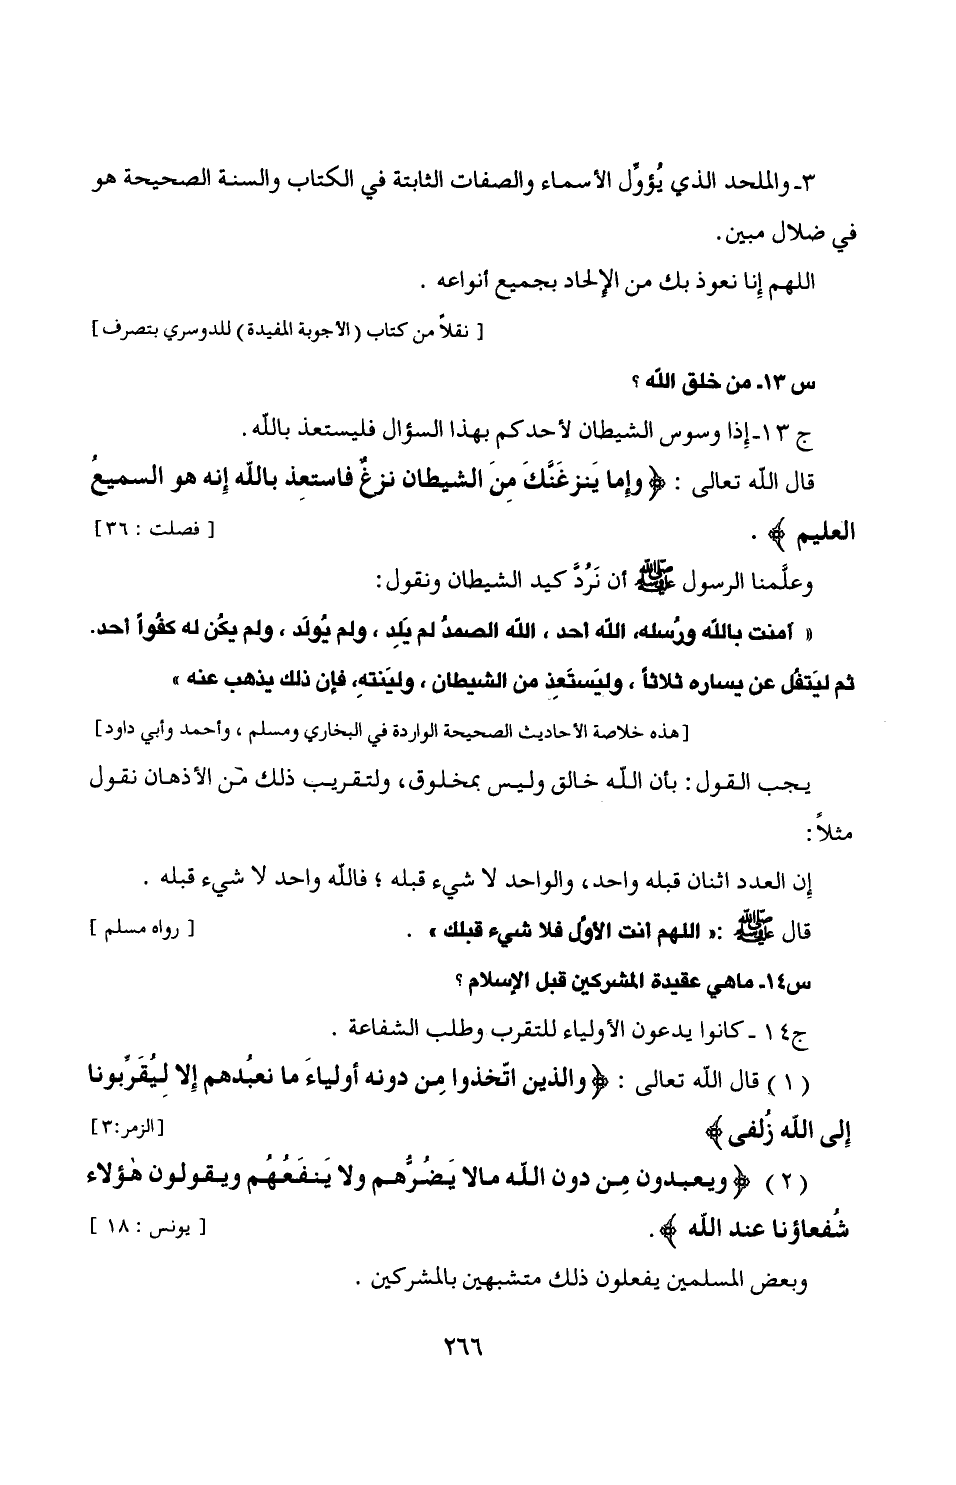 ٣ـ والملحد الذي يُؤوِّل الأسماء والصفات الثابتة في الكتاب والسنة الصحيحة هو
في ضلال مبين.
اللهم إنا نعوذ بك من الإلحاد بجميع أنواعه .
[ نقلاً من كتاب (الأجوبة المفيدة) للدوسري بتصرف]
س ١٣ـ من خلق الله ؟
ج ١٣ـ إذا وسوس الشيطان لأحدكم بهذا السؤال فليستعذ بالله.
قال الله تعالى : ﴿ وإما يَنزغَنَّكَ مِنَ الشيطان نزغٌ فاستعِذ بالله إنه هو السميعُ
العليم ﴾ . [ فصلت : ٣٦]
وعلَّمنا الرسول ﷺ أن نَرُدَّ كيد الشيطان ونقول:
« آمنت بالله ورُسله، الله أحد ، الله الصمدُ لم يَلِد ، ولم يُولَد ، ولم يكن له كفُواً أحد.
ثم ليَتفُل عن يساره ثلاثاً ، وليَستَعِذ من الشيطان ، وليَنتهِ، فإن ذلك يذهب عنه »
[هذه خلاصة الأحاديث الصحيحة الواردة في البخاري ومسلم ، وأحمد وأبي داود]
يجب القول : بأن الله خالق وليس بمخلوق، ولتقريب ذلك من الأذهان نقول
مثلاً :
إن العدد اثنان قبله واحد، والواحد لا شيء قبله ؛ فالله واحد لا شيء قبله .
قال ﷺ :« اللهم أنت الأوَّل فلا شيء قبلك » . [ رواه مسلم ]
س١٤ـ ماهي عقيدة المشركين قبل الإسلام ؟
ج١٤ ـ كانوا يدعون الأولياء للتقرب وطلب الشفاعة .
(١) قال الله تعالى : ﴿ والذين اتّخذوا مِن دونه أولياءَ ما نعبُدهم إلا لِيُقَرِّبونا
إلى الله زُلفى ﴾ [الزمر:٣]
(٢) ﴿ ويعبدون مِن دون الله مالا يَضُرُّهم ولا يَنفَعُهُم ويقولون هٰؤلاء
شُفعاؤنا عند الله ﴾ . [ يونس : ١٨ ]
وبعض المسلمين يفعلون ذلك متشبهين بالمشركين .
٢٦٦